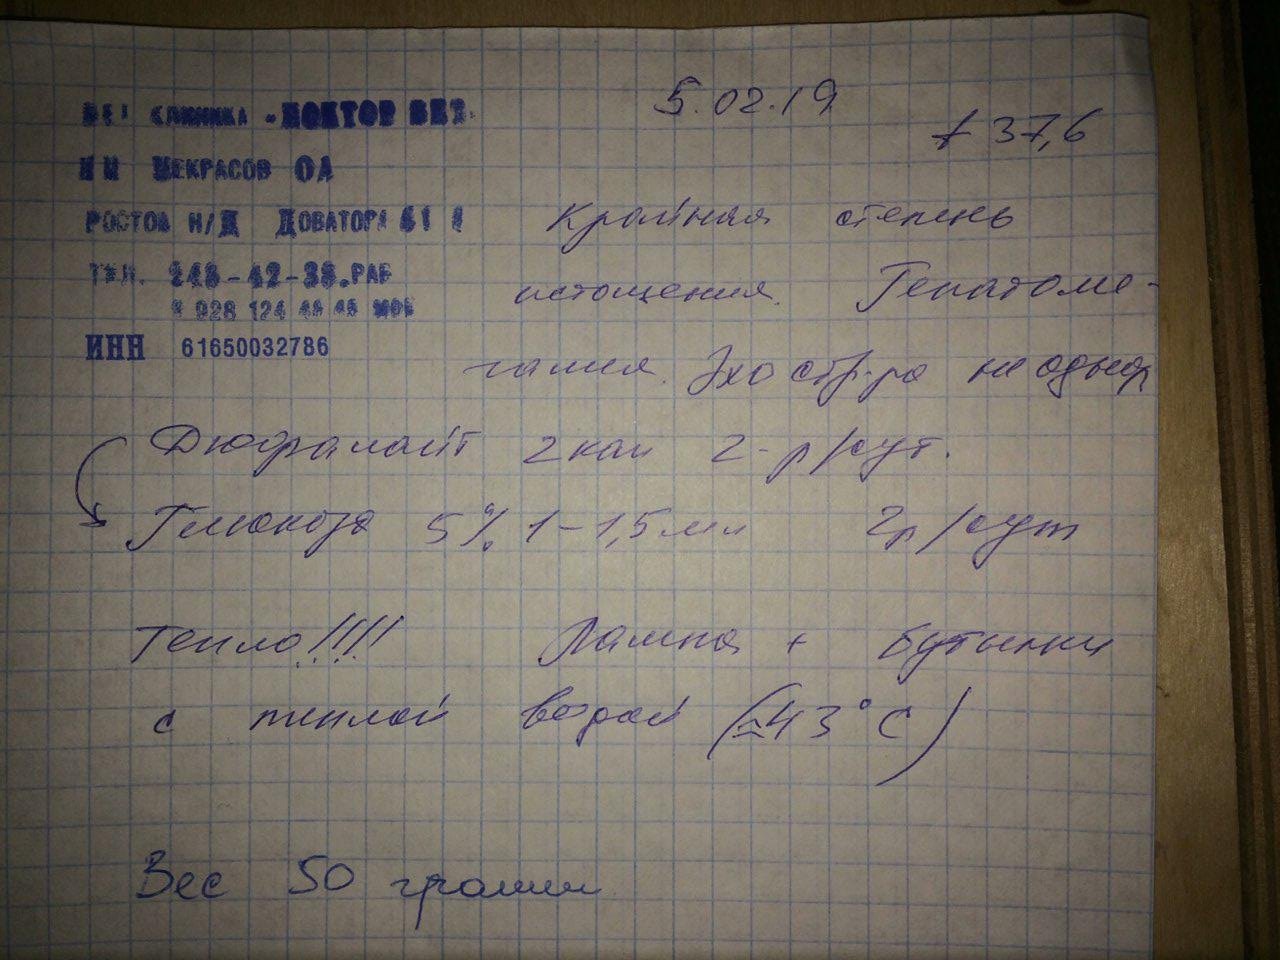 ВЕТ КЛИНИКА "ДОКТОР ВЕТ"
ИП НЕКРАСОВ ОА
РОСТОВ Н/Д ДОВАТОРА
ТЕЛ. 248-42-38.РАБ
8 928 124 МОБ
ИНН 61650032786
5.02.19
t 37,6
Крайная степень
истощения. Гепатоме-
галия. Эхо стр-ра не однор
Дюфалайт 2 кап 2-р/сут.
Глюкоза 5% 1-1,5 мл 2р/сут
Тепло!!!! Лампа + бутылки
с теплой водой (≈43°С)
Вес 50 грамм